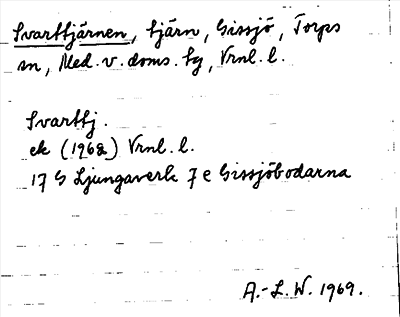 Svarttjärnen, tjärn, Gissjö, Torps
sn, Med. v. doms. tg, Vrnl. l.
Svarttj.
ek (1962) Vrnl. l.
17 G Ljungaverk 7 e Gissjöbodarna
A.-L. W. 1969.